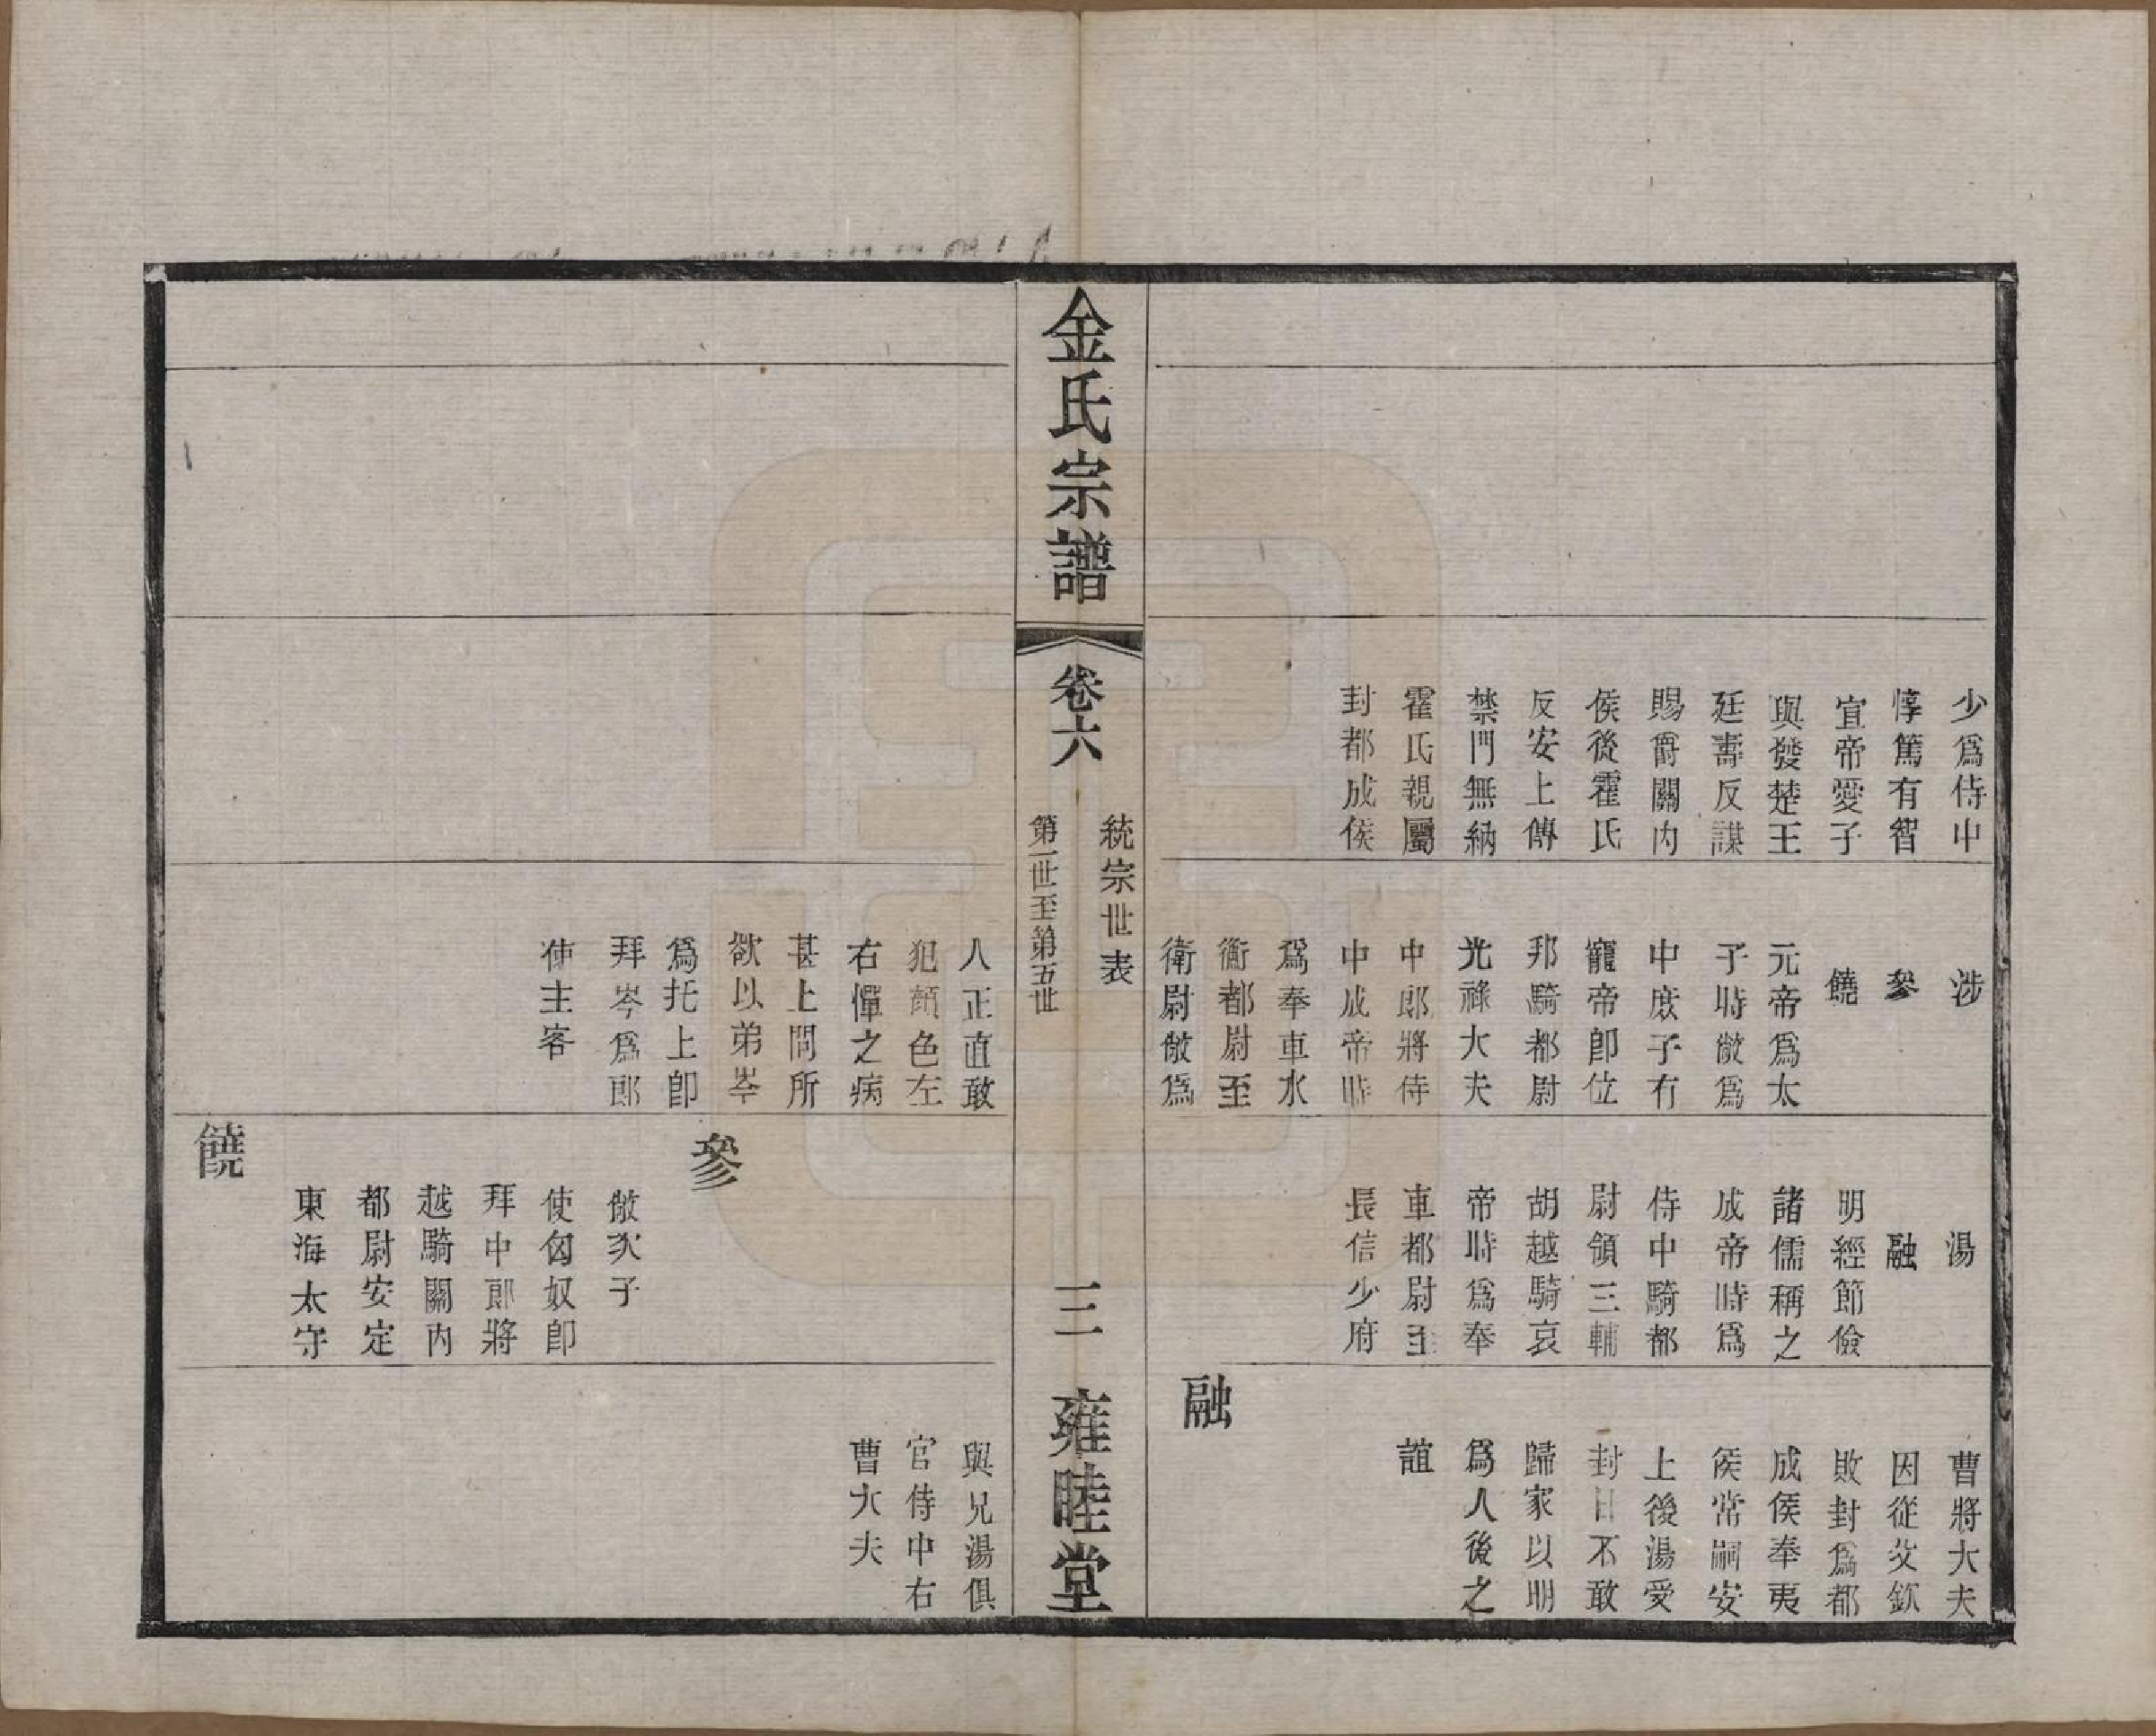 少爲侍中
惇篤有智
宣帝愛子
與發楚王
廷壽反謀
賜爵關内
侯後霍氏
反安上傳
禁門無納
霍氏親屬
封都成侯
涉
參
饒
元帝爲太
子時敞爲
中庶子有
寵帝卽位
邦騎都尉
光祿大夫
中郎將侍
中成帝時
爲奉車水
衡都尉至
衛尉敞爲
湯
融
明經節儉
諸儒稱之
成帝時爲
侍中騎都
尉領三輔
胡越騎哀
帝時爲奉
車都尉至
長信少府
曹將大夫
因從父欽
敗封爲都
成侯奉夷
侯常嗣安
上後湯受
封日不敢
歸家以明
爲人後之
誼
融
金氏宗譜
卷六
統宗世表
第一世至第五世
三
雍睦堂
人正直敢
犯顔色左
右憚之病
甚上問所
欲以弟岑
爲托上卽
拜岑爲郎
使主客
參
敞次子
使匈奴卽
拜中郎將
越騎關内
都尉安定
東海太守
饒
與兄湯俱
官侍中右
曹大夫